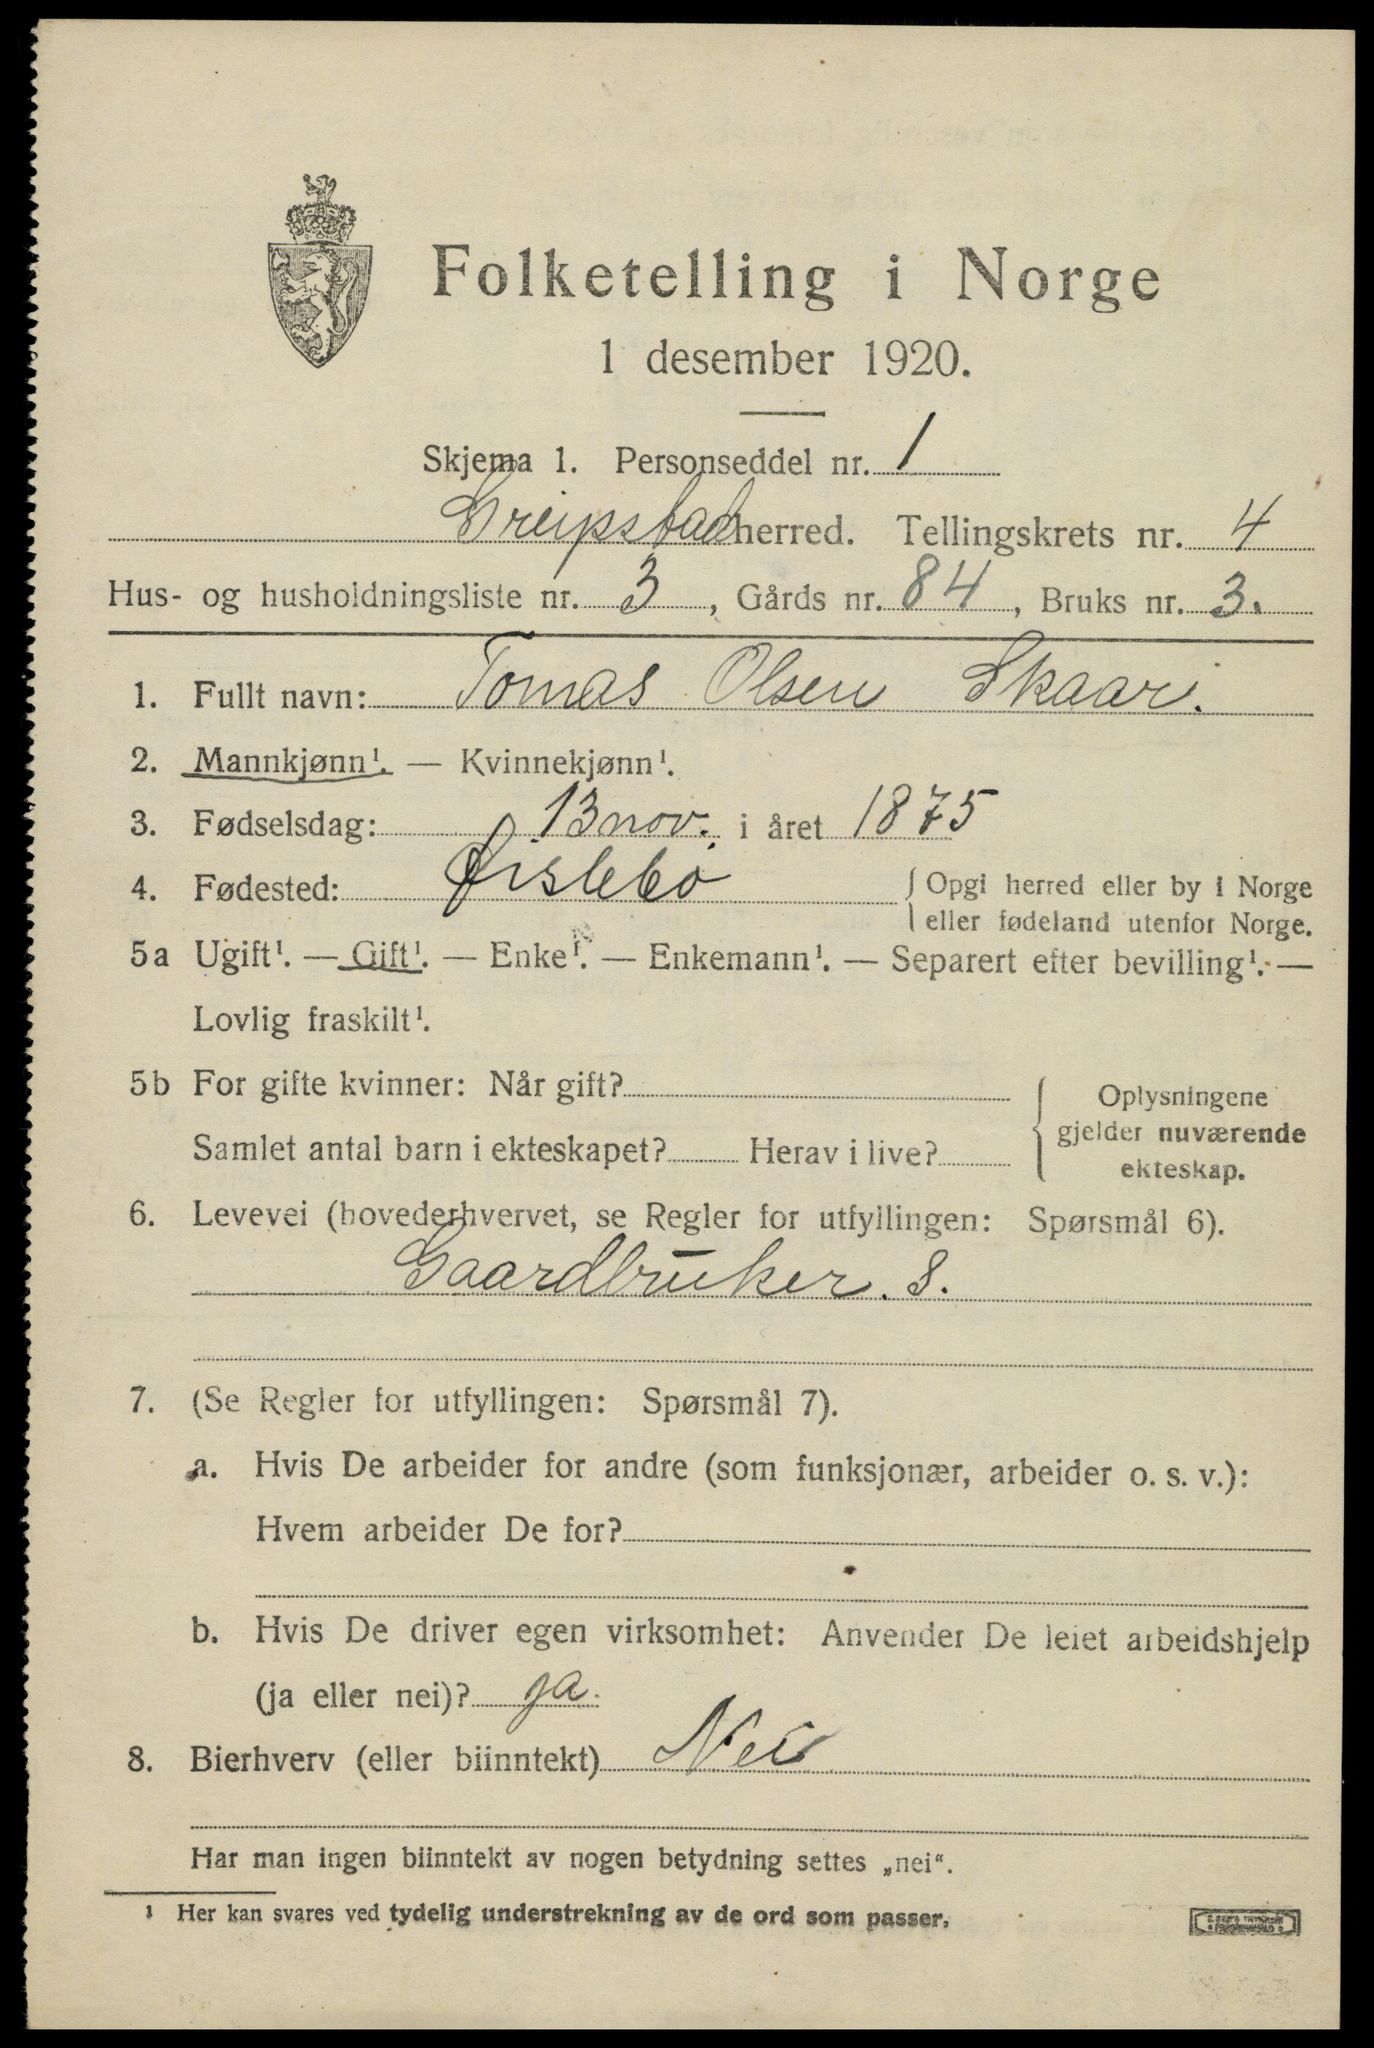 Folketelling i Norge
1 desember 1920.
Skjema 1. Personseddel nr. 1
Greipstad herred. Tellingskrets nr. 4
Hus- og husholdningsliste nr. 3, Gårds nr. 84, Bruks nr. 3.
1. Fullt navn: Tomas Olsen Skaar.
2. Mannkjønn¹. — Kvinnekjønn¹.
3. Fødselsdag: 13 nov. i året 1875
4. Fødested: Øislebø { Opgi herred eller by i Norge
eller fødeland utenfor Norge.
5a Ugift¹. — Gift¹. — Enke¹. — Enkemann¹. — Separert efter bevilling¹. —
Lovlig fraskilt¹.
5b For gifte kvinner: Når gift?
Samlet antal barn i ekteskapet? Herav i live?
{ Oplysningene
gjelder nuværende
ekteskap.
6. Levevei (hovederhvervet, se Regler for utfyllingen: Spørsmål 6).
Gaardbruker. S.
7. (Se Regler for utfyllingen: Spørsmål 7).
a. Hvis De arbeider for andre (som funksjonær, arbeider o. s. v.):
Hvem arbeider De for?
b. Hvis De driver egen virksomhet: Anvender De leiet arbeidshjelp
(ja eller nei)? ja.
8. Bierhverv (eller biinntekt) Nei
Har man ingen biinntekt av nogen betydning settes „nei“.
¹ Her kan svares ved tydelig understrekning av de ord som passer.